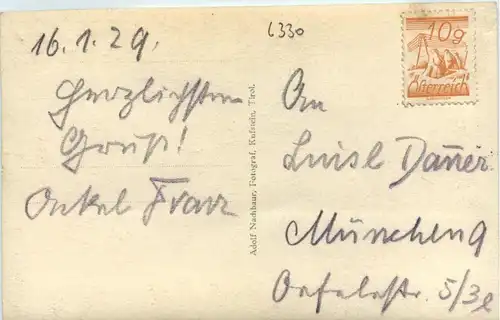 16.1.29.
6330
Herzlichsten
Gruß!
Onkel Franz
Adolf Nachbaur, Fotograf, Kufstein, Tirol.
10g
Österreich
An
Luisl Dauer
München 9
5/3